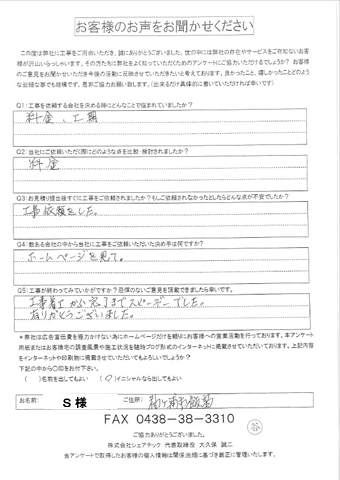 お客様のお声をお聞かせください
この度は弊社に工事をご用命いただき、誠にありがとうございました。世の中には弊社の存在やサービスをご存知ないお客
様が沢山いらっしゃいます。その方たちに弊社をよく知っていただくためのアンケートにご協力いただけるでしょうか？ お客様
のご意見をお聞かせいただき今後の活動に反映させていただきたいと考えております。良かったこと、嬉しかったことどのよう
な些細な事でも結構です。是非ご協力お願い致します。(出来るだけ具体的に書いていただければ幸いです)
Q1:工事を依頼する会社を決める時にどんなことで悩まれていましたか？
料金、工期
Q2:当社にご依頼いただく際にどのような点を比較・検討されましたか？
料金
Q3:お見積り提出後すぐに工事をご依頼されましたか？もしご依頼されなかったとしたらどんな点が不安でしたか？
工事依頼をした。
Q4:数ある会社の中から当社に工事をご依頼いただいた決め手は何ですか？
ホームページを見て。
Q5:工事が終わってみていかがですか？忌憚のないご意見を頂戴できましたら幸いです。
工事着工から完了までスピーデーでした。
ありがとうございました。
＊弊社は広告宣伝費を極力かけない為にホームページだけを頼りにお客様への営業活動を行っております。本アンケート
用紙またはお客様宅の調査風景や施工状況を随時ブログ形式のインターネットに掲載させていただいております。上記内容
をインターネットや印刷物に掲載させていただいてもよろしいでしょうか？
下記の中から○印をお付下さい。
(　)名前を出してもよい　(○)イニシャルなら出してもよい
お名前: S 様 ご住所:
FAX 0438-38-3310
谷
ご協力ありがとうございました。
株式会社シェアテック 代表取締役 大久保 誠二
当アンケートで取得したお客様の個人情報は関係法規に基づき厳正に管理いたします。